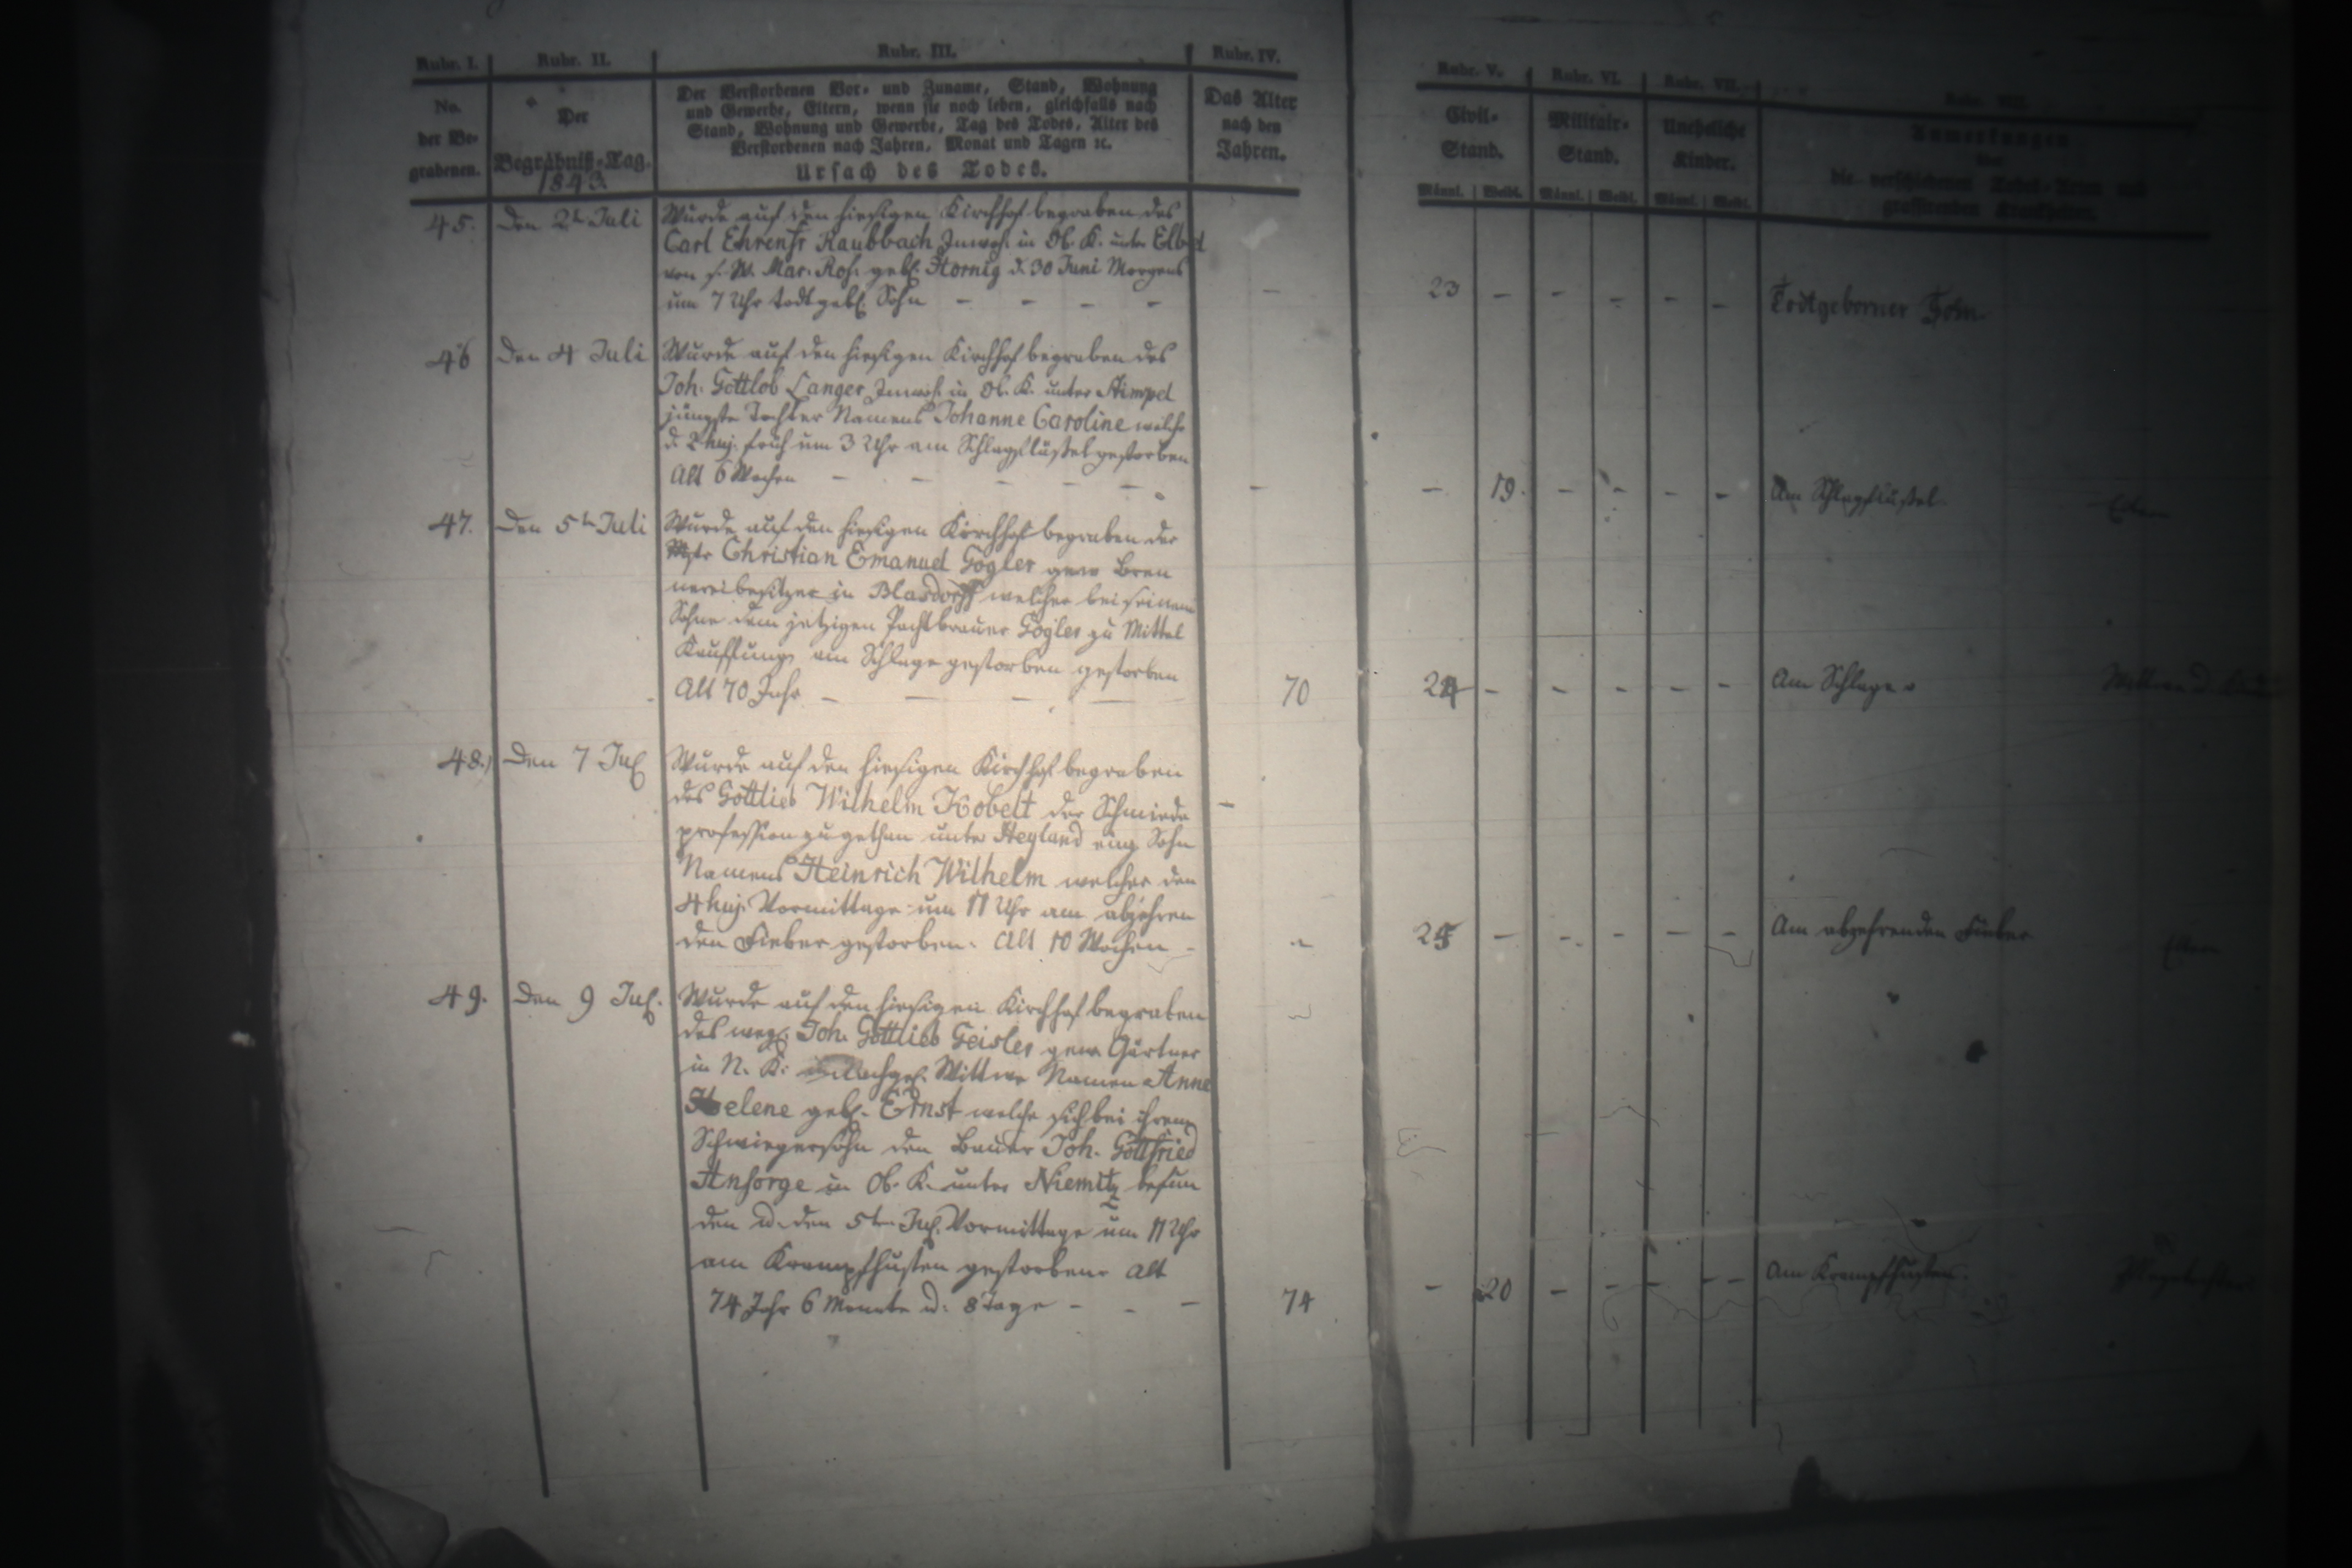 Rubr. I. Rubr. II. Rubr. III. Rubr. IV. Rubr. V. Rubr. VI. Rubr. VII.
No.
der Be-
grabenen.
Der
Begräbniß-Tag.
1843.
Der Verstorbenen Vor- und Zuname, Stand, Wohnung
und Gewerbe, Eltern, wenn sie noch leben, gleichfalls nach
Stand, Wohnung und Gewerbe, Tag des Todes, Alter des
Verstorbenen nach Jahren, Monat und Tagen ꝛc.
Ursach des Todes.
Das Alter
nach den
Jahren.
Civil-
Stand.
Männl. Weibl.
Militair-
Stand.
Männl. Weibl.
Uneheliche
Kinder.
Männl. Weibl.
Anmerkungen
über
die verschiedenen Todes-Arten und
grassirenden Krankheiten.
45. Den 2t Juli
Wurde auf den hiesigen Kirchhof begraben des
Carl Ehrenfr Raubbach Inwoh. in Ob. K. unter Elbel
von s. W. Mar. Ros. geb. Hornig d. 30 Juni Morgens
um 7 Uhr todtgeb. Sohn - - - -
- 23 - - - - - Todtgeborner Sohn.
46 Den 4 Juli
Wurde auf den hiesigen Kirchhof begraben des
Joh. Gottlob Langer Inwoh. in Ob. K. unter Stimpel
jüngste Tochter Namens Johanne Caroline welche
d. 2 huj. früh um 3 Uhr am Schlagflüssel gestorben
Alt 6 Wochen - - - - -
- - 19. - - - - Am Schlagflüssel
47. Den 5t Juli
Wurde auf den hiesigen Kirchhof begraben der
Mstr Christian Emanuel Gögler gew Bren
nereibesitzer in Blasdorff welcher bei seinem
Sohne dem jetzigen Pachtbrauer Gögler zu Mittel
Kauffung am Schlage gestorben gestorben
Alt 70 Jahr - - - -
70 24 - - - - - Am Schlage
48. Den 7 Jul
Wurde auf den hiesigen Kirchhof begraben
des Gottlieb Wilhelm Kobelt der Schmiede
profession zugethan unter Heyland einz. Sohn
Namens Heinrich Wilhelm welcher den
4 huj. Vormittags um 11 Uhr am abzehren
den Fieber gestorben. Alt 10 Wochen -
- 25 - - - - - Am abzehrenden Fieber
49. Den 9 Jul.
Wurde auf den hiesigen Kirchhof begraben
des weyl. Joh. Gottlieb Geisler gew Gärtner
in N. K. nachgel. Wittwe Namens Anne
Helene geb. Ernst welche sich bei ihrem
Schwiegersohn den Bauer Joh. Gottfried
Ansorge in Ob. K. unter Niemitz befun
den u. den 5ten Jul. Vormittags um 11 Uhr
am Krampfhusten gestorben. Alt
74 Jahr 6 Monate u. 8 Tage - - -
74 - 20 - - - - Am Krampfhusten.